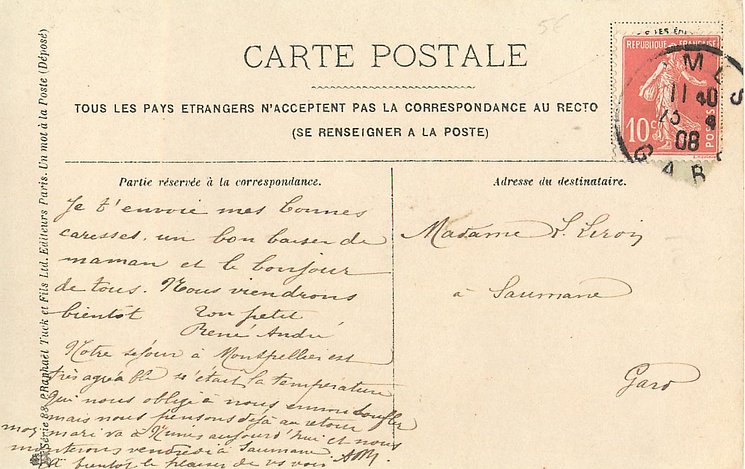 5€
CARTE POSTALE
TOUS LES PAYS ETRANGERS N'ACCEPTENT PAS LA CORRESPONDANCE AU RECTO
(SE RENSEIGNER A LA POSTE)
REPUBLIQUE FRANÇAISE
10c
POSTES
MES
11 40
08
GARD
Série 88. Raphael Tuck et Fils Ltd. Editeurs Paris. Un mot à la Poste (Déposé)
Partie réservée à la correspondance.
Je t'envoie mes bonnes
caresses, un bon baiser de
maman et le bonjour
de tous. Nous viendrons
bientôt Ton petit
René André
Notre séjour à Montpellier est
très agréable si c'était la temperature
qui nous oblige à nous
mais nous pensons déjà au retour
mon mari va à Nimes aujourd'hui et nous
monterons vendredi à Saumane.
à bientôt le plaisir de vs voir.
Adresse du destinataire.
Madame
à Saumane
Gard